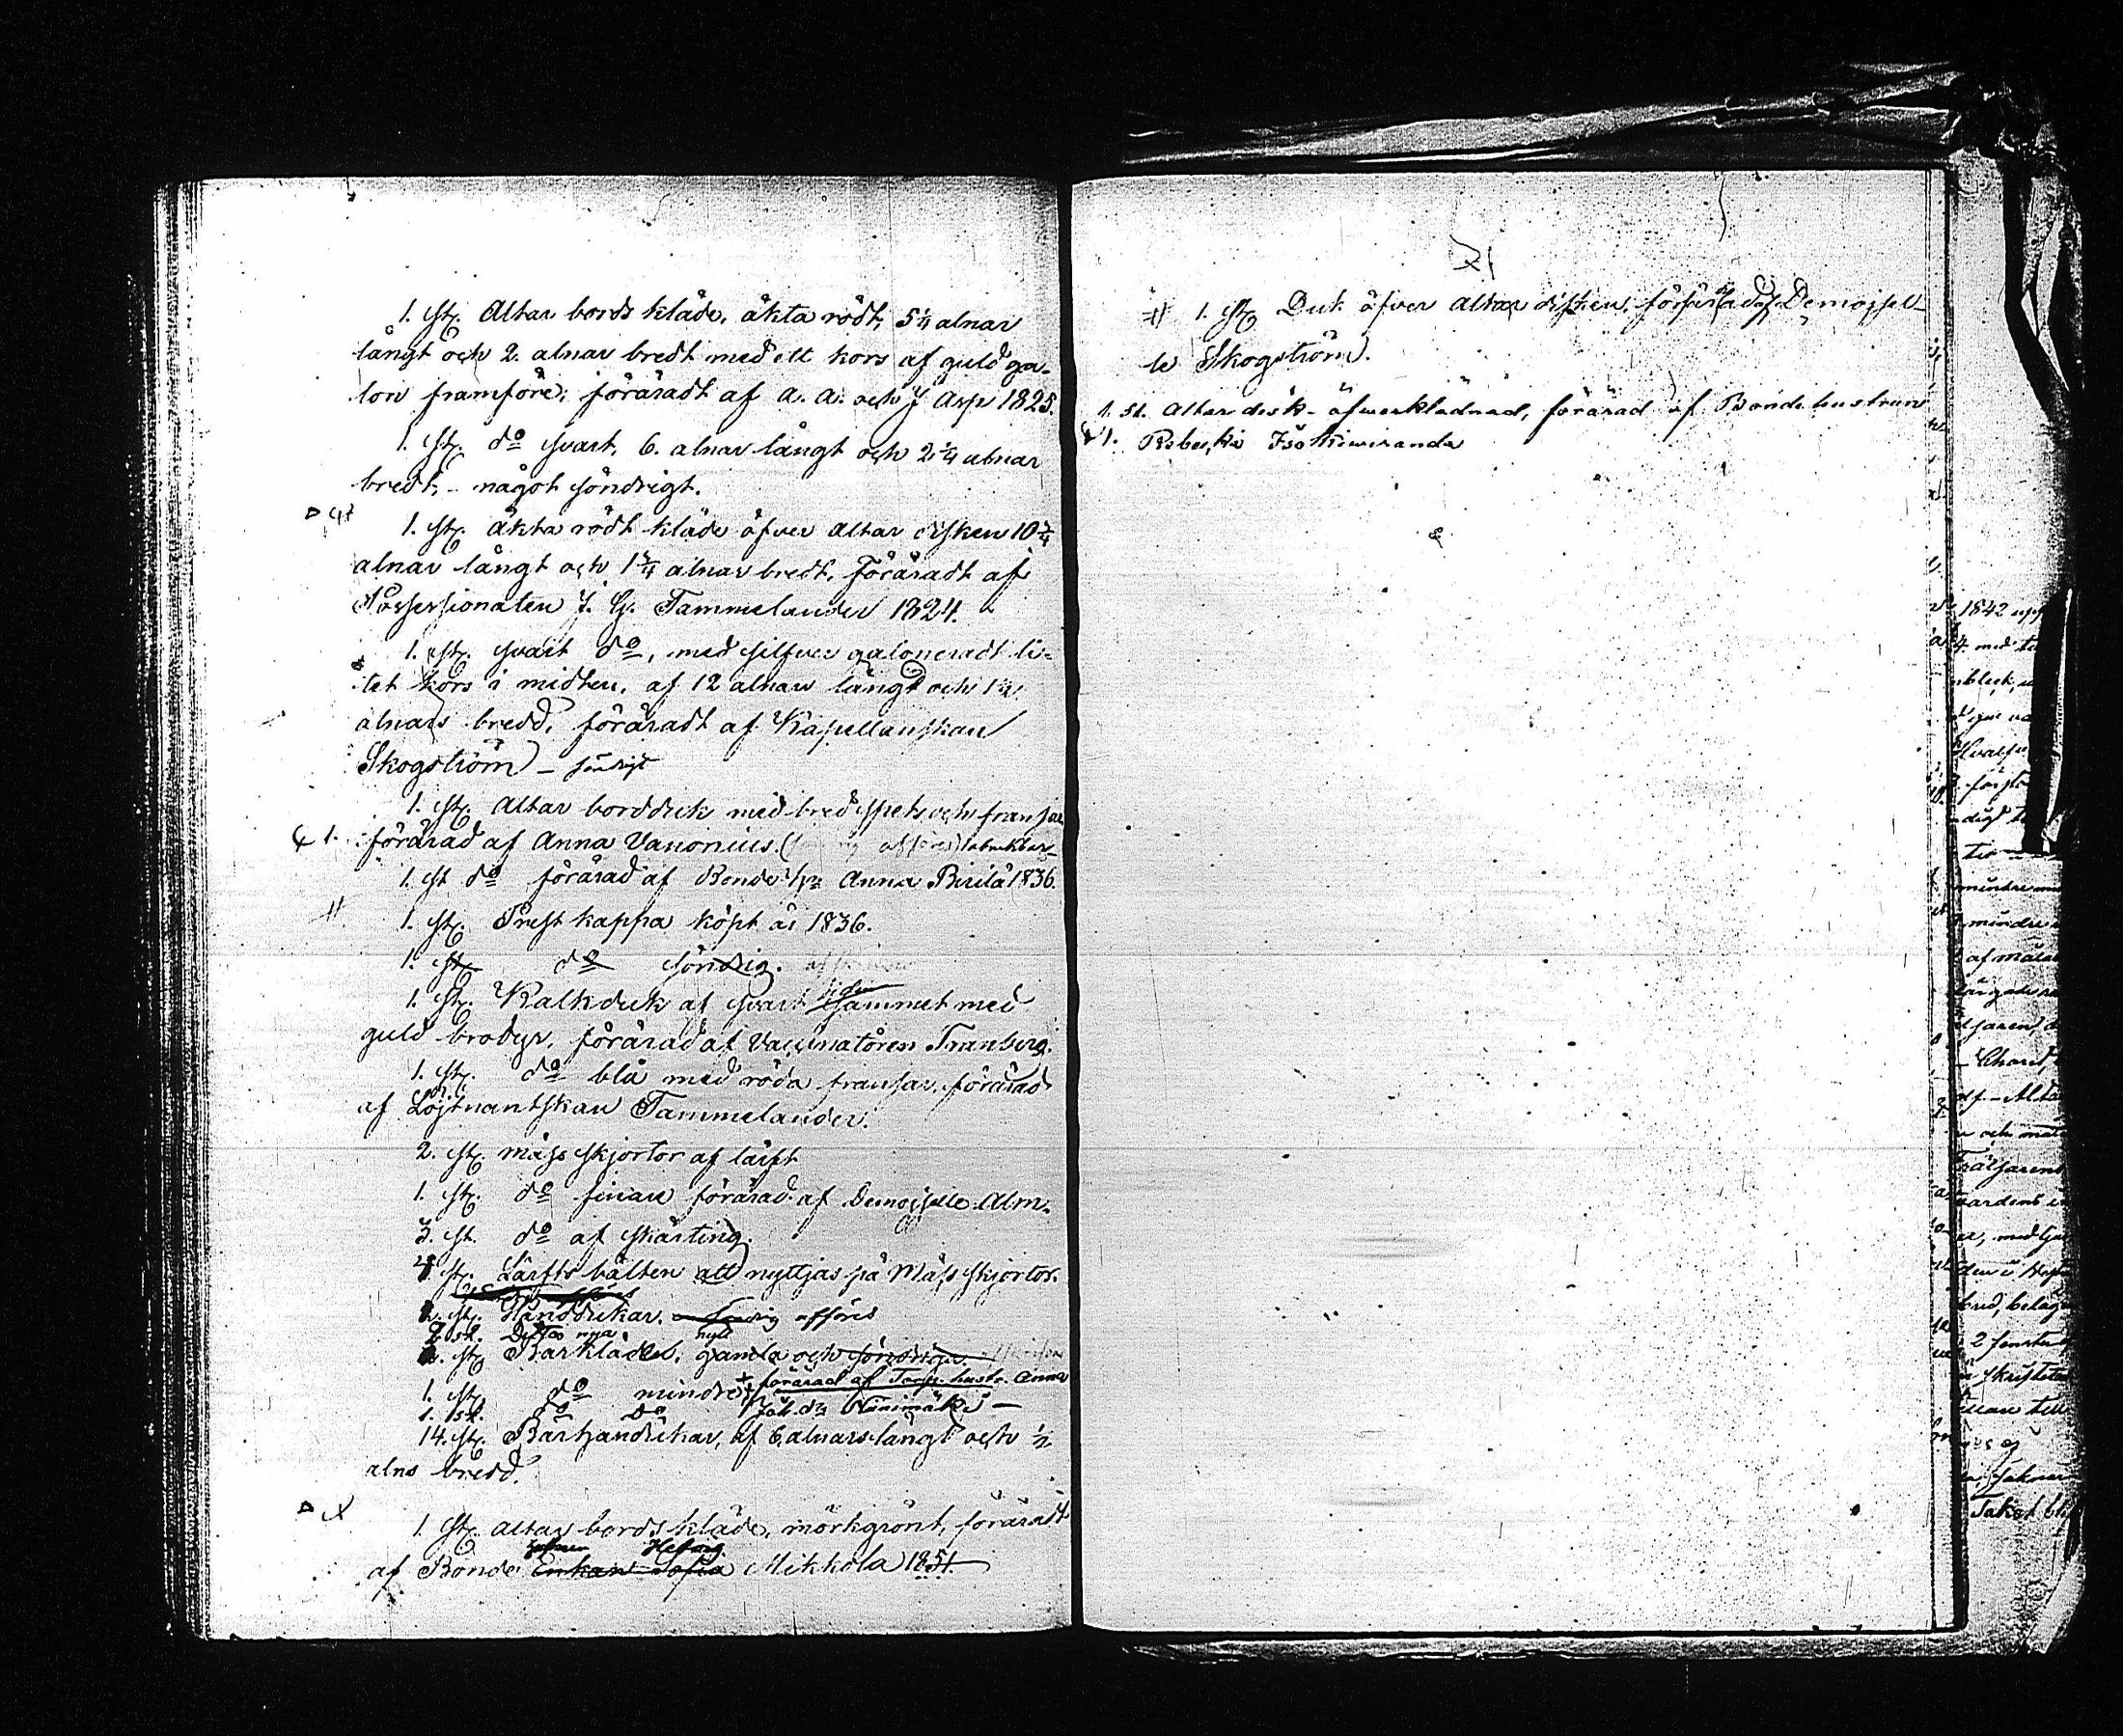 1. st. Altar bords kläde, äkta rödt, 5¼ alnar
långt och 2. alnar bredt med ett kors af guld ga-
lon framföre, föräradt af A. A. och J Asp 1825.
1. st. do svart, 6. alnar långt och 2¼ alnar
bredt, - något söndrigt.
1. st. äkta rödt kläde öfver Altar disken 10¾
alnar långt och 1¾ alnar bredt, Föräradt af
Possessionaten J. G. Tammelander 1824.
1. st. svart do, med silfver galoneradt li-
tet kors i midten, af 12 alnar långt och 1½
alnars bredd, föräradt af Kapellanskan
Skogström - söndrigt
1. st. Altar bordduk med bred spets och fransar
förärad af Anna Vanonius.
1. st do förärad af Bonde Anna Pirilä 1836.
1. st. Prest kappa köpt år 1836.
1. st. do söndrig.
1. st. Kalkduk af svart siden sammet med
guld brodyr, förärad af Vaccinatören Tranberg.
1. st. do blå med röda fransar, förärad
af Löjtnantskan Tammelander.
2. st. mäss skjortor af lärft
1. st. do finare förärad af Demoiselle Alm.
3. st. do af skärting.
4 st. Lärfts bälten att nyttjas på Mäss skjortor.
st. Handdukar. söndrig afföres
2 st. Ditto nya nytt
st. Bårkläde, gamla och söndriga.
1. st do mindre + förärad af Torp. hustr. Anna
1. st. do do Jak. dr Niinimäki -
14. st. Bårhandukar, af 6, alnars längd och ½
alns bredd.
1 st. altar bords kläde, mörkgrönt, föräradt
af Bonde Enkan Sofia Mikkola 1851.
1. st. Duk öfver altar disken, förärad af Demoisel-
le Skogström.
1. st. Altar disk-öfverklädnad, förärad af Bonde hustrun
1. Isokiviranda